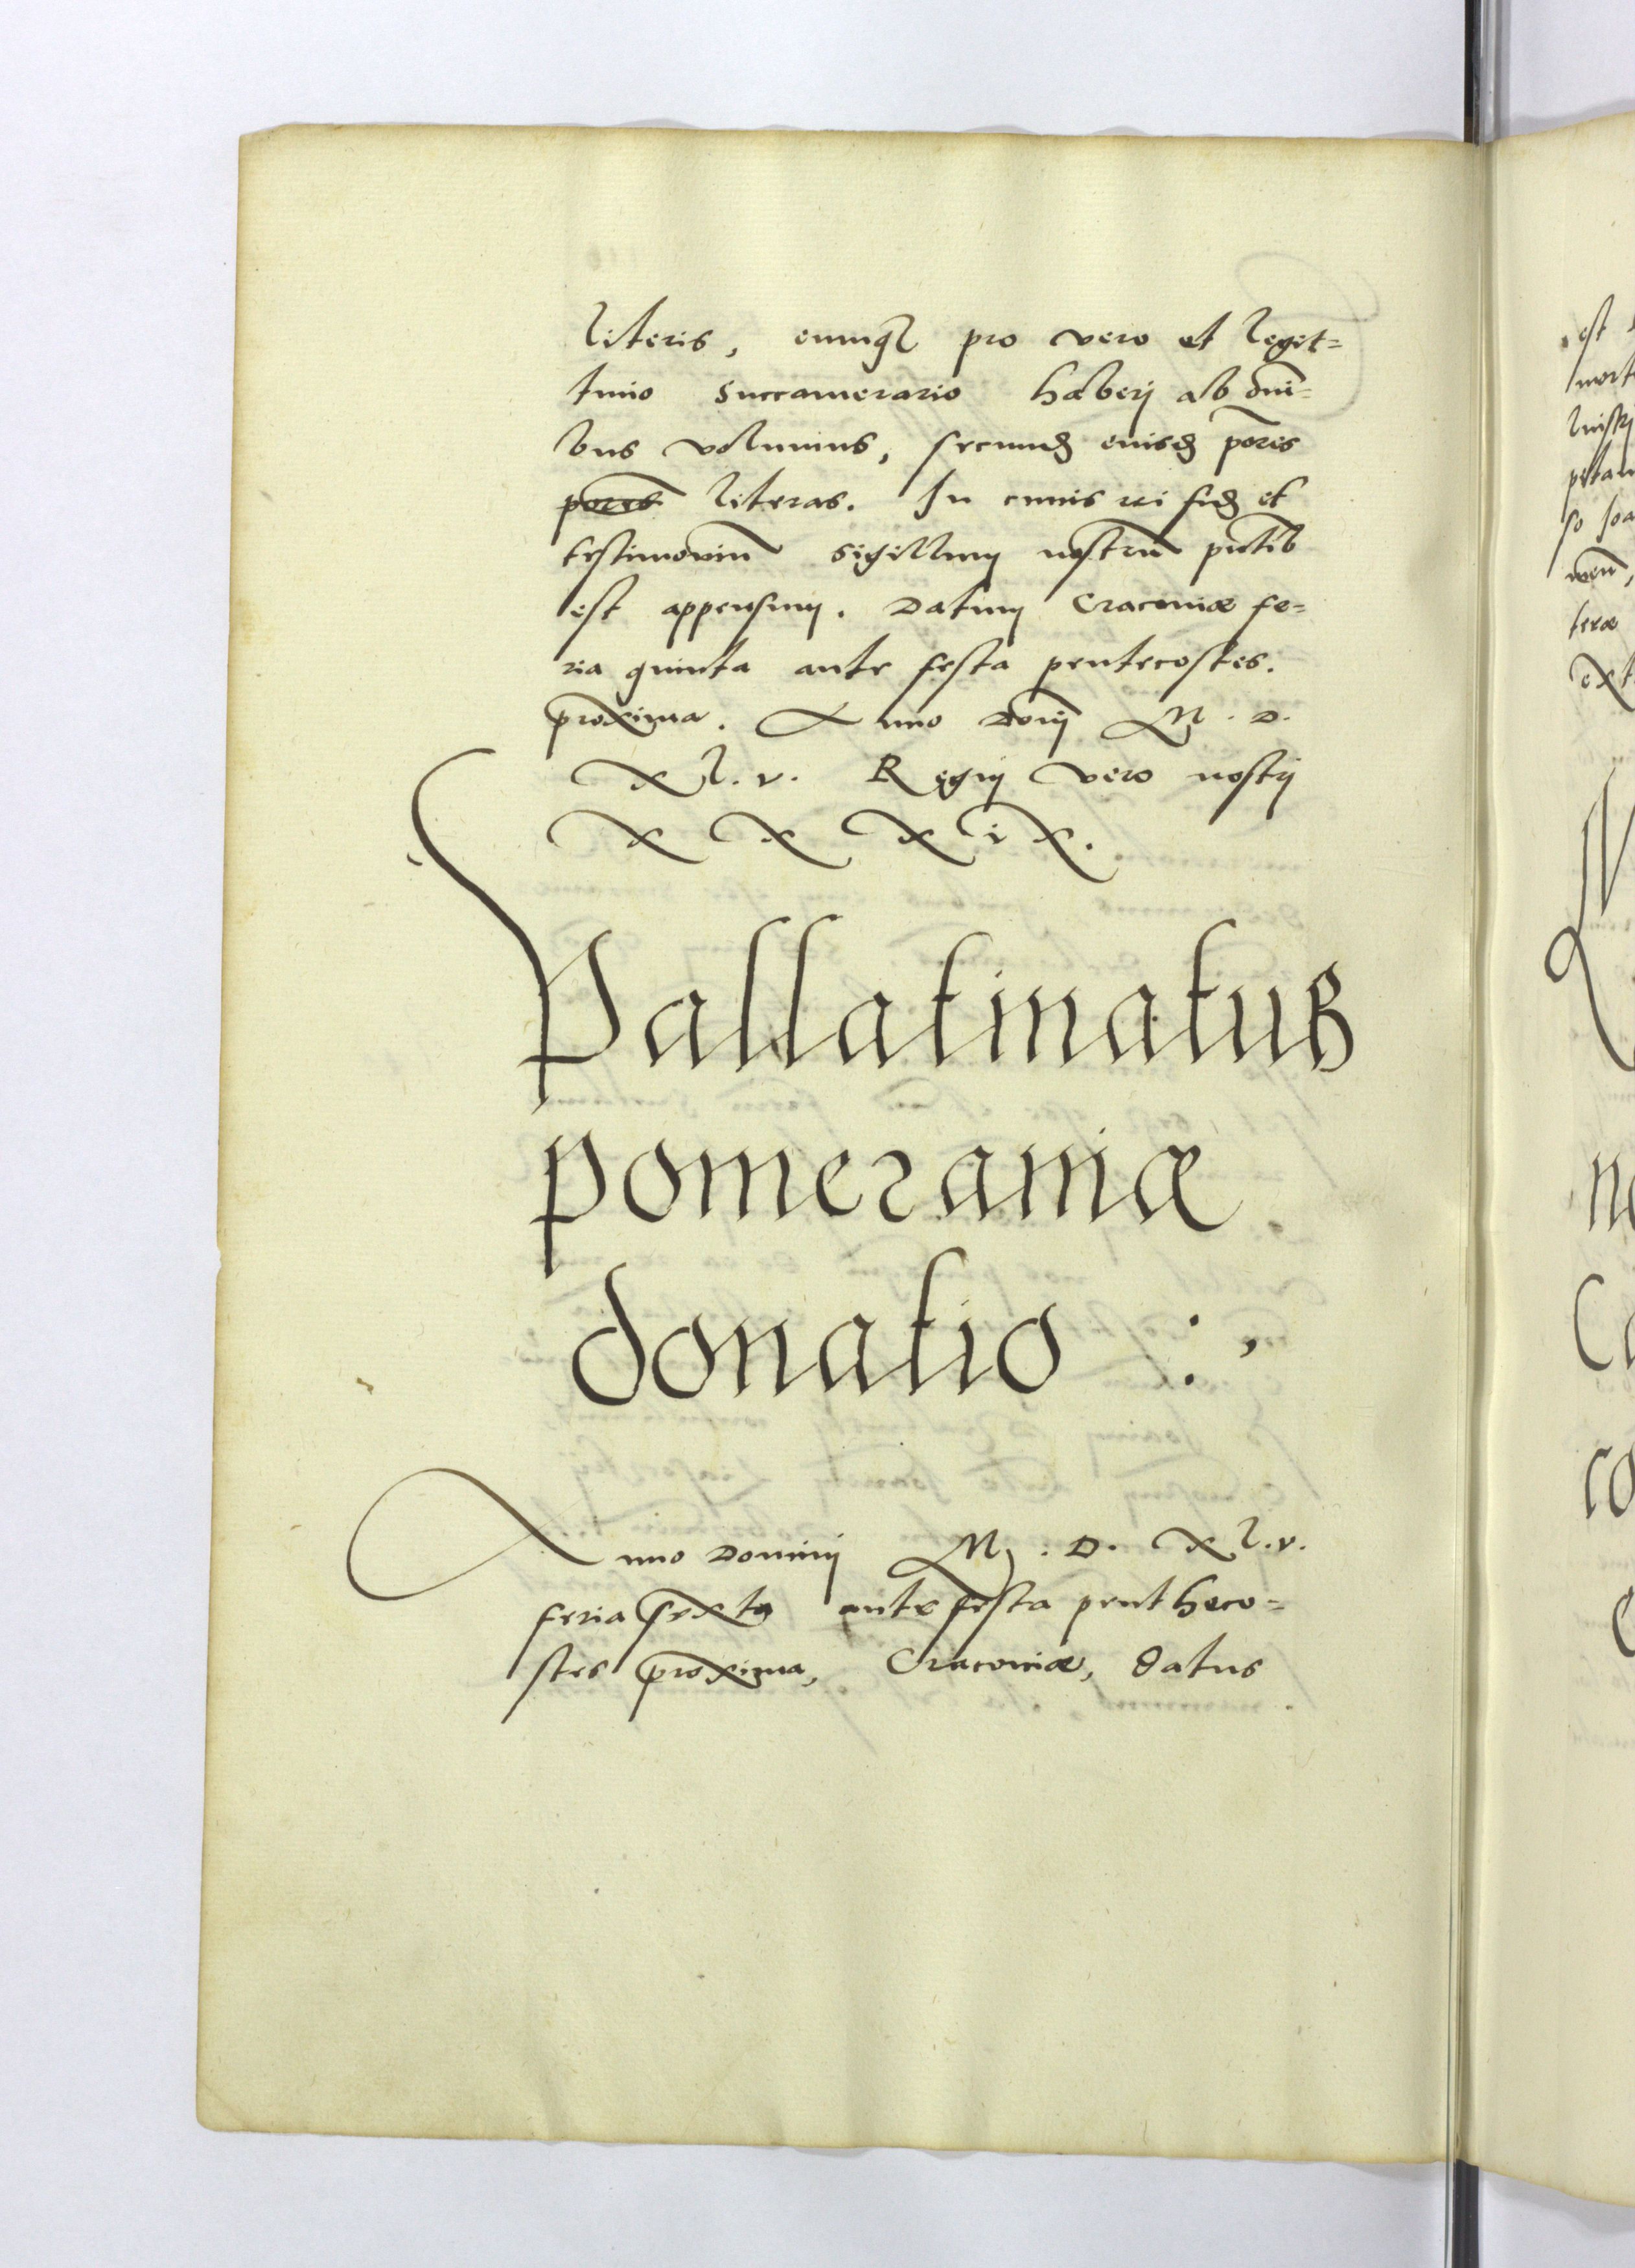 literis, eumq₃ pro vero et legit=
timo Succamerario haberj ab om̄i=
bus volumus, secund₃ eiusd₃ p̄ores
p̄ores literas. In cuius rei fid₃ et
testimoniū sigillum nostrū pn̄tib
est appensum. Datum Cracoviæ fe=
ria quinta ante festa pentecostes.
proxima. Anno Donj M. D.
XL.v. Regnj vero nostrj
XXXiX.
Pallatinatus
pomeraniæ
donatio :,
Anno Dominj M. D. XL.v.
feria sexta ante festa pentheco=
stes proxima, Cracoviæ, datus
est